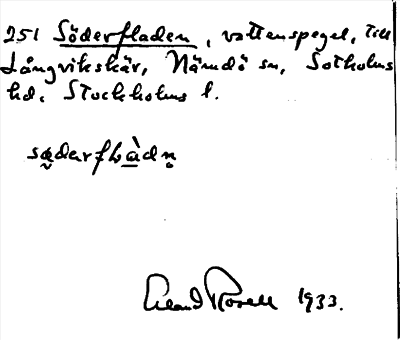 251 Söderfladen, vattenspegel, till
Långvikskär, Nämdö sn, Sotholms
hd. Stockholms l.
sœ̰darfḷàdṇ
Erland Rosell 1933.